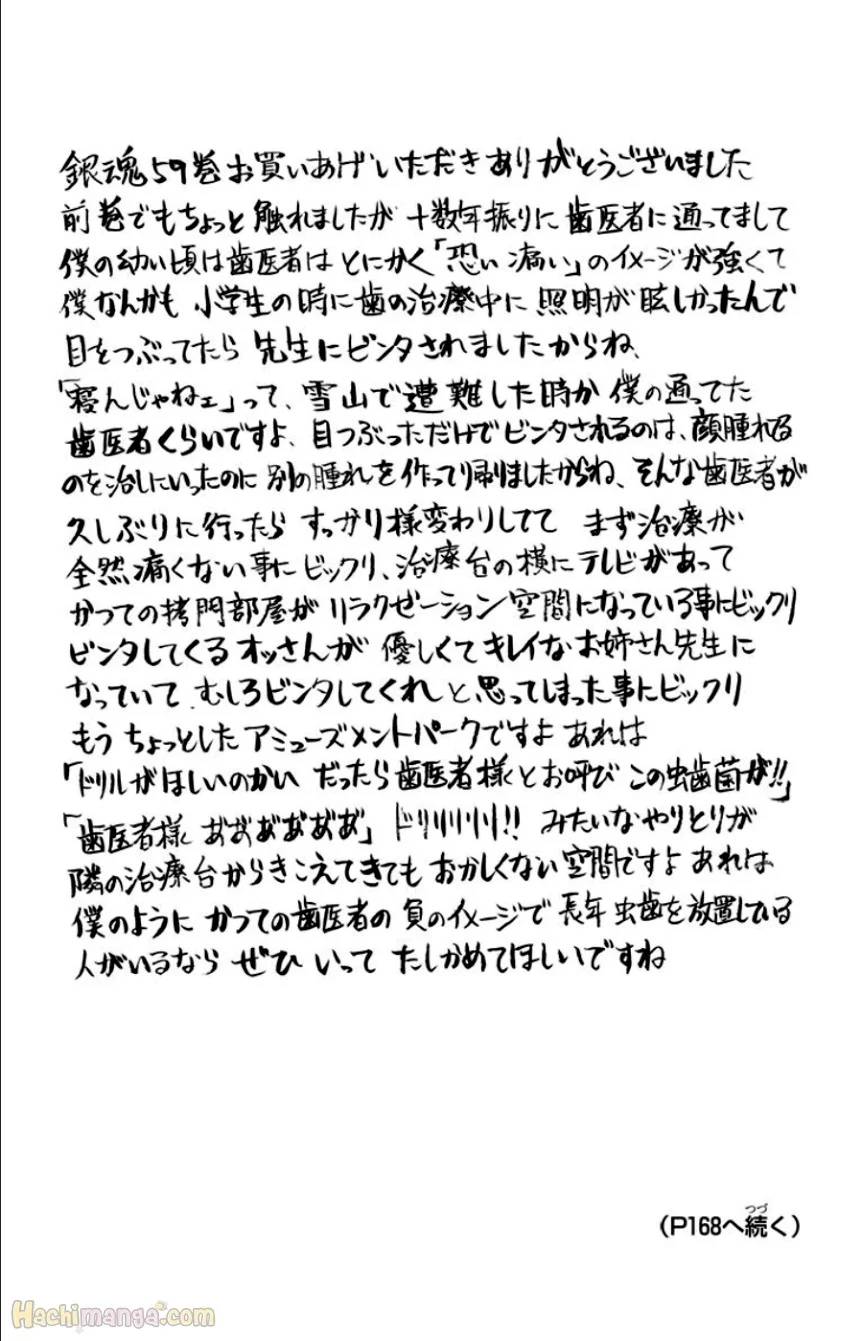 銀魂59巻お買いあげいただきありがとうございました
前巻でもちょっと触れましたが 十数年振りに歯医者に通ってまして
僕の幼い頃は歯医者はとにかく「恐い痛い」のイメージが強くて
僕なんかも 小学生の時に歯の治療中に照明が眩しかったんで
目をつぶってたら 先生にビンタされましたからね、
「寝んじゃねェ」って、雪山で遭難した時か 僕の通ってた
歯医者くらいですよ、目つぶっただけでビンタされるのは、顔腫れる
のを治しにいったのに 別の腫れを作ってり帰りましたからね、そんな歯医者が
久しぶりに行ったら すっかり様変わりしてて まず治療が
全然痛くない事にビックリ、治療台の横にテレビがあって
かつての拷問部屋が リラクゼーション空間になっている事にビックリ
ビンタしてくるオッさんが 優しくてキレイなお姉さん先生に
なっていて むしろビンタしてくれ と思ってしまった事にビックリ
もう ちょっとした アミューズメントパークですよ あれは
「ドリルがほしいのかい だったら歯医者様とお呼び この虫歯菌が!!」
「歯医者様 あ゛あ゛あ゛あ゛あ゛あ゛」 ドリリリリリ!! みたいなやりとりが
隣の治療台からきこえてきても おかしくない空間ですよ あれは
僕のように かつての歯医者の 負のイメージで 長年 虫歯を放置している
人がいるなら ぜひ いって たしかめてほしいですね
(P168へ続く)
つづ
Hachimanga.com